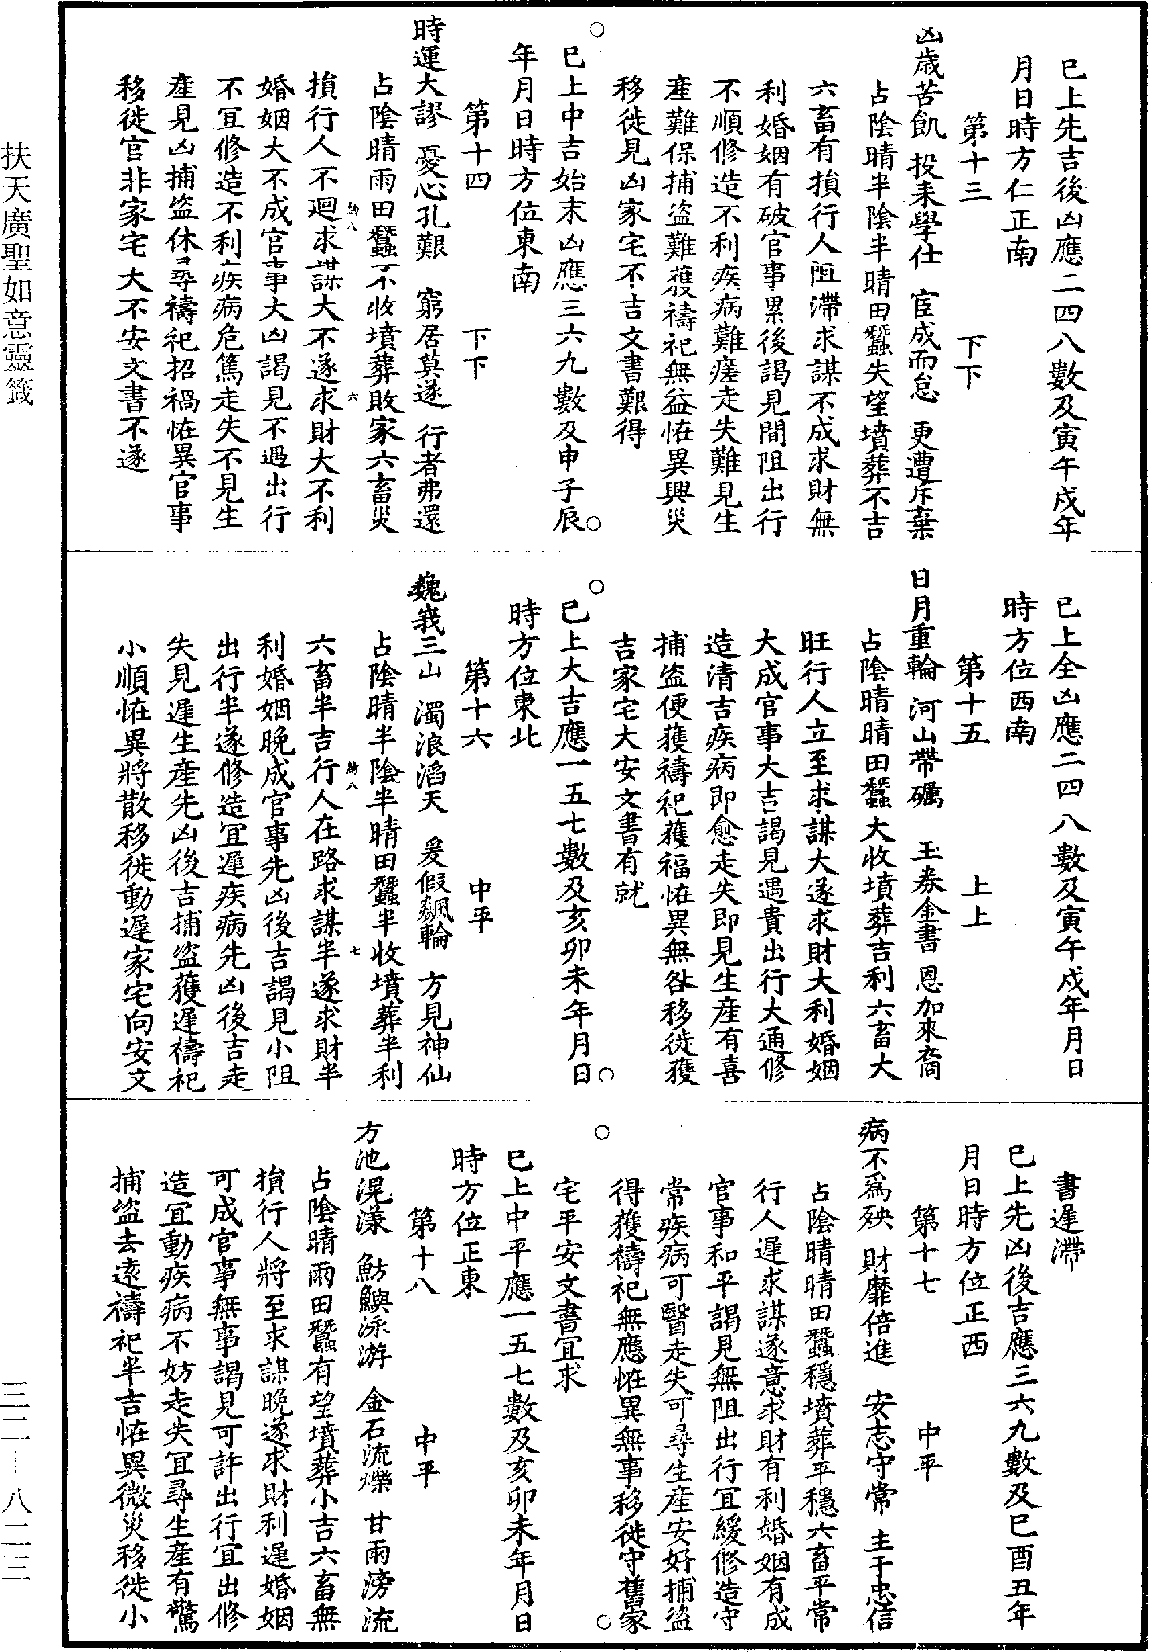 巳上先吉後凶應二四八數及寅午戍年
月日時方仁正南
第十三　下下
凶歲苦飢　投耒學仕　宦成而怠　更遭斥棄
占陰晴半陰半晴田蠶失望墳葬不吉
六畜有損行人阻滯求謀不成求財無
利婚姻有破官事累後謁見間阻出行
不順修造不利疾病難瘥走失難見生
產難保捕盜難獲禱祀無益恠異興災
移徙見凶家宅不吉文書艱得
○
巳上中吉始末凶應三六九數及申子辰
年月日時方位東南
○
第十四　下下
時運大謬　憂心孔艱　窮居莫遂　行者弗還
占陰晴雨田蠶不收墳葬敗家六畜災
損行人不迴求謀大不遂求財大不利
婚姻大不成官事大凶謁見不遇出行
不宜修造不利疾病危篤走失不見生
產見凶捕盜休尋禱祀招禍恠異官事
移徙官非家宅大不安文書不遂
巳上全凶應二四八數及寅午戍年月日
時方位西南
第十五　上上
日月重輪　河山帶礪　玉券金書　恩加來裔
占陰晴晴田蠶大收墳葬吉利六畜大
旺行人立至求謀大遂求財大利婚姻
大成官事大吉謁見遇貴出行大通修
造清吉疾病即愈走失即見生產有喜
捕盜便獲禱祀獲福恠異無咎移徙獲
吉家宅大安文書有就
○
巳上大吉應一五七數及亥卯未年月日
時方位東北
○
第十六　中平
巍峩三山　濁浪滔天　爰假飆輪　方見神仙
占陰晴半陰半晴田蠶半收墳葬半利
六畜半吉行人在路求謀半遂求財半
利婚姻晚成官事先凶後吉謁見小阻
出行半遂修造宜遲疾病先凶後吉走
失見遲生產先凶後吉捕盜獲遲禱祀
小順恠異將散移徙動遲家宅向安文
書遲滯
巳上先凶後吉應三六九數及巳酉丑年
月日時方位正西
第十七　中平
病不為殃　財靡倍進　安志守常　主于忠信
占陰晴晴田蠶穩墳葬平穩六畜平常
行人遲求謀遂意求財有利婚姻有成
官事和平謁見無阻出行宜緩修造守
常疾病可醫走失可尋生產安好捕盜
得獲禱祀無應恠異無事移徙守舊家
宅平安文書宜求
○
巳上中平應一五七數及亥卯未年月日
時方位正東
○
第十八　中平
方池滉瀁　魴鱮泳游　金石流爍　甘雨滂流
占陰晴雨田蠶有望墳葬小吉六畜無
損行人將至求謀晚遂求財利遲婚姻
可成官事無事謁見可許出行宜出修
造宜動疾病不妨走失宜尋生產有驚
捕盜去遠禱祀半吉恠異微災移徙小
扶天廣聖如意靈籤
三二—八二三